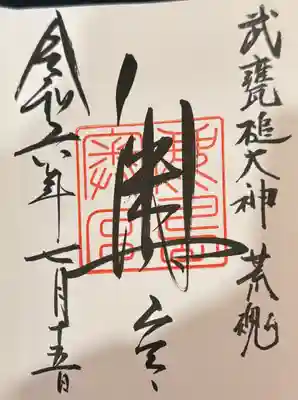 武甕槌大神 荒魂
奥宮
令和六年七月十五日